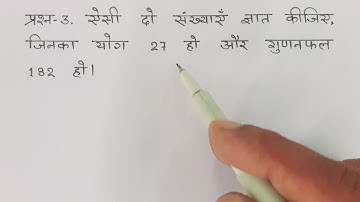 प्रश्न-3. ऐसी दो संख्याएँ ज्ञात कीजिए,
जिनका योग 27 हो और गुणनफल
182 हो।